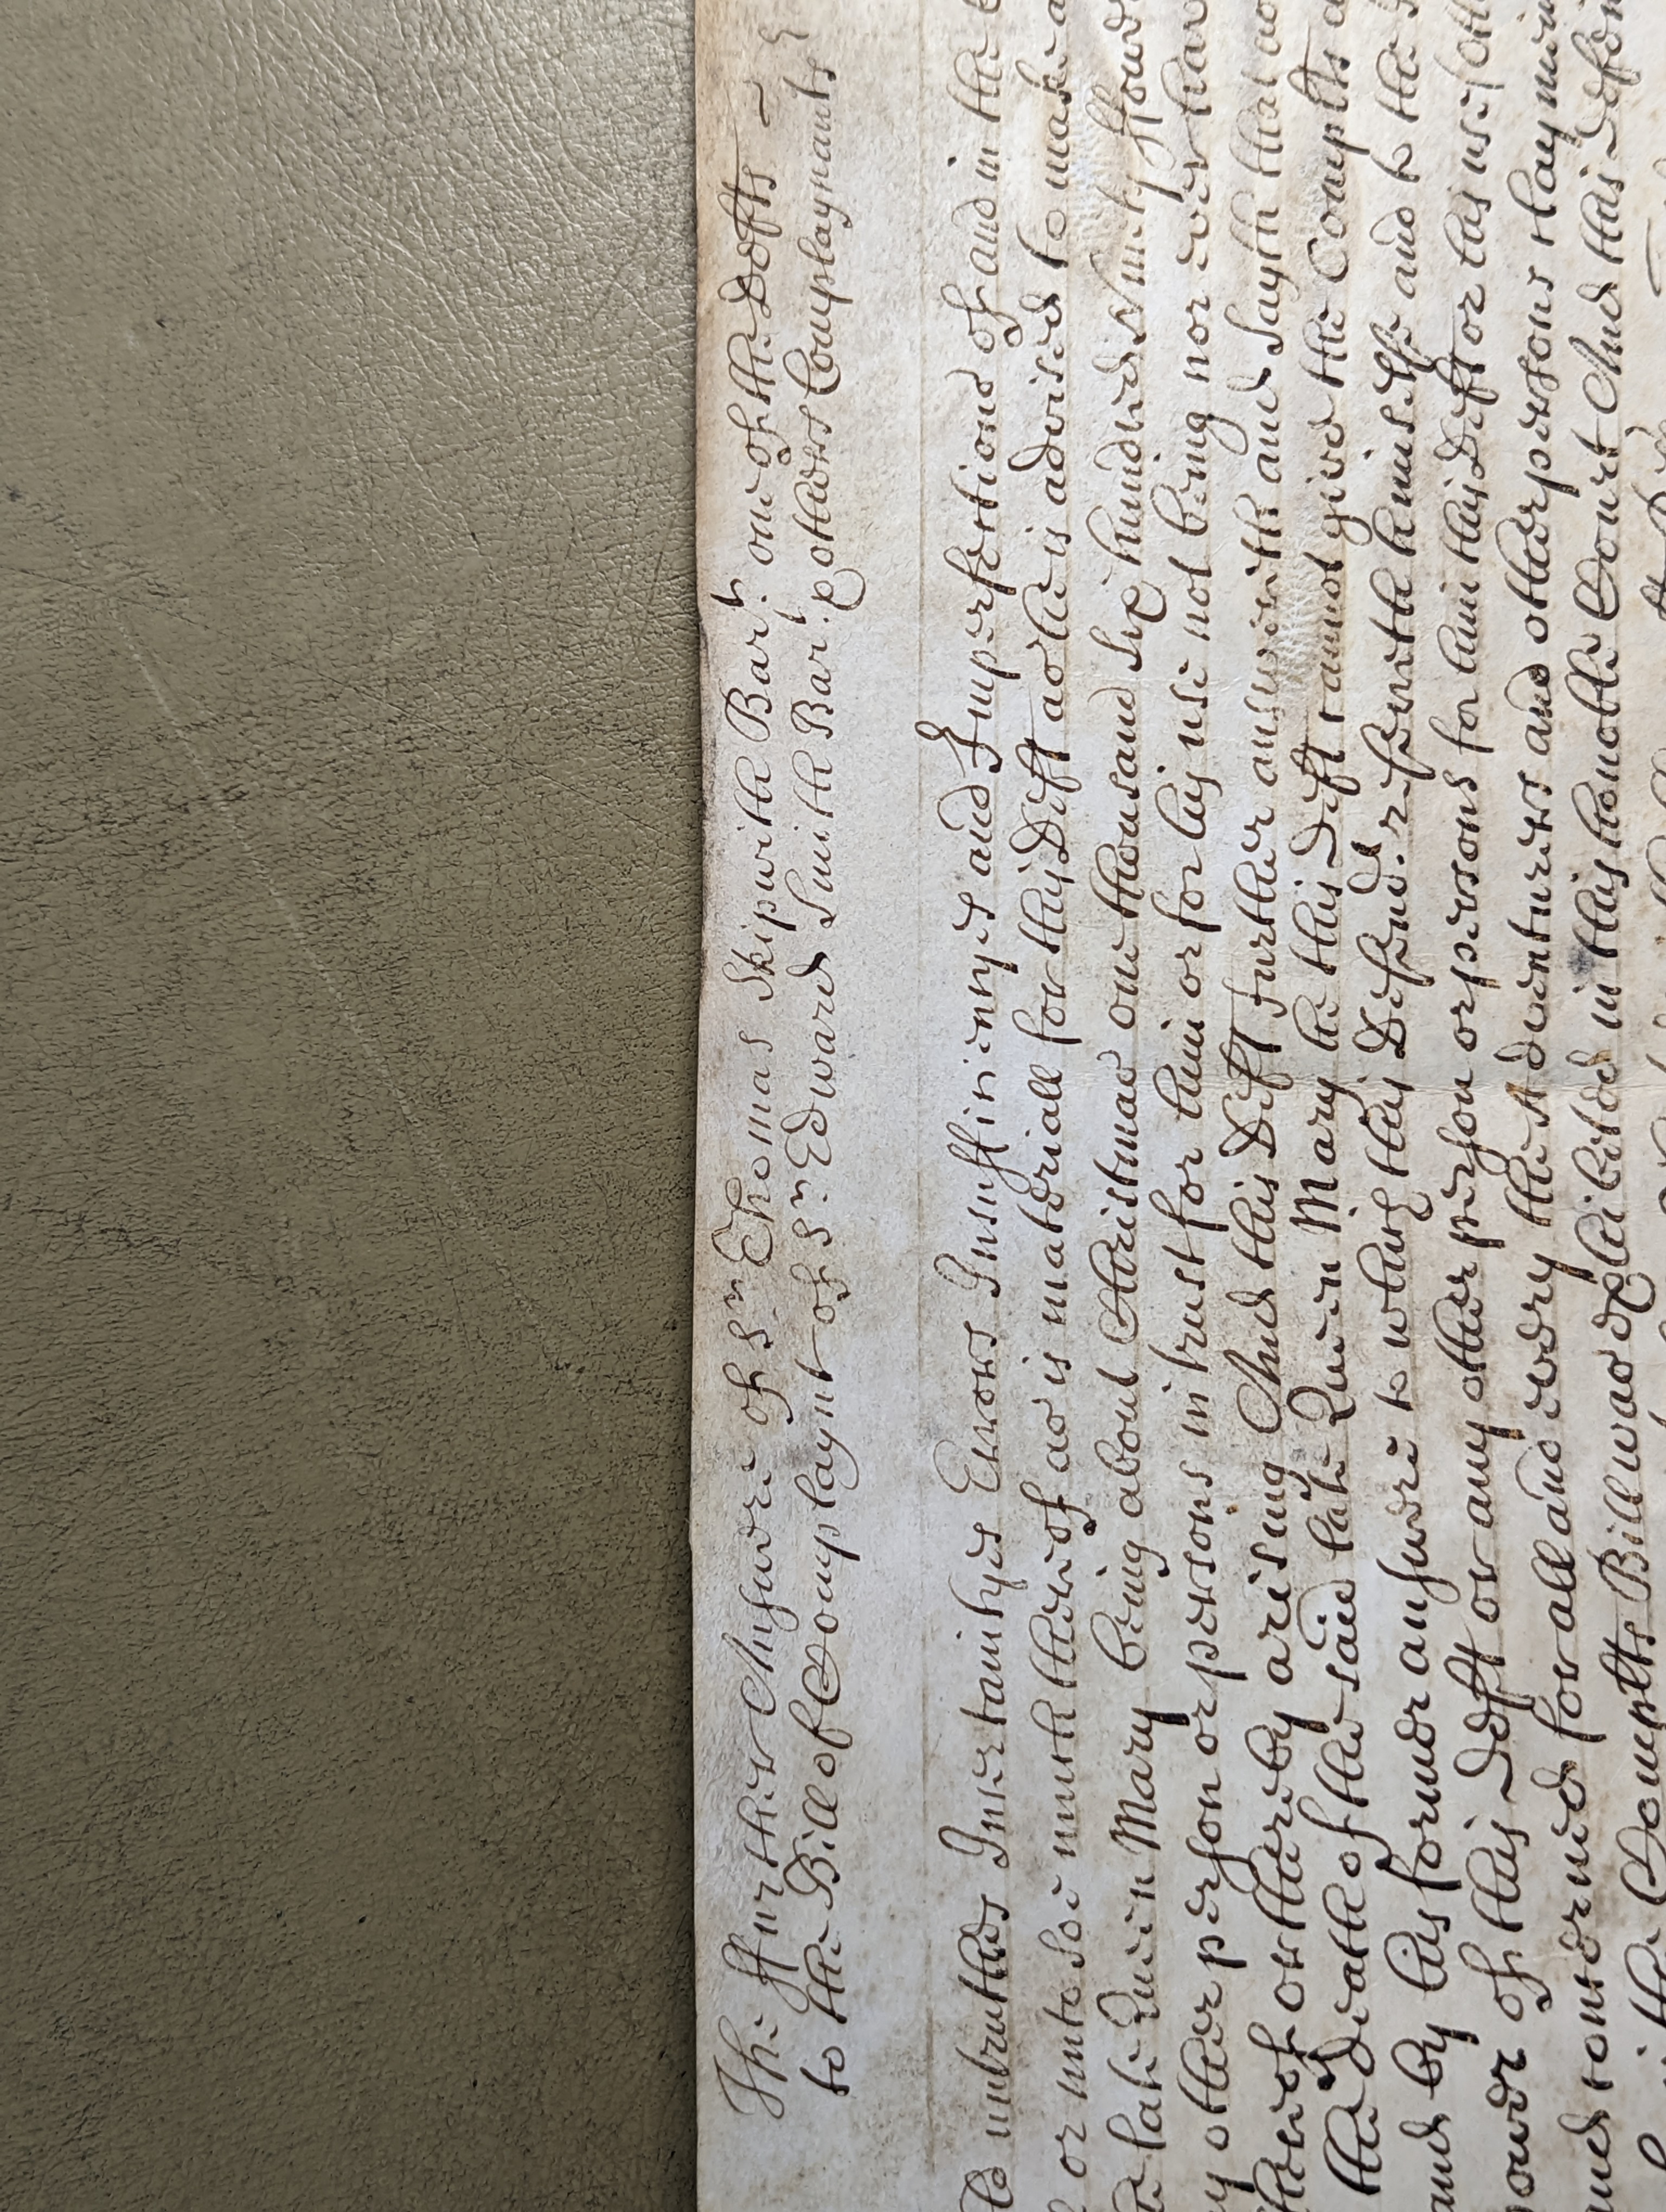 The ffurther Answere of Sr. Thomas Skipwith Bart. one of the Defts –
to the Bill of Complaynt of Sr. Edward Smith Bart. & others Complaynants
untruthes Incertaintyes Errors Insufficiencyes and Imperfections of and in the
or unto soe much thereof as is materiall for this Deft as he is advised to make
late Queen Mary being about Christmas one thousand six hundred Ninty ffoure
other person or persons in trust for him or for his use not being nor ever
thereof or thereby arising And this Deft further answereth and Sayth that
the death of the said late Queen Mary he this Deft cannot give the Complts
and by his former answere to which this Defendt. referreth himselfe and to the
of this Deft or any other person or persons for him this Deft or his use
and concerned for all and every the Adventurers and other persons clayming
the Complts Bill was exhibited in this honoble Court And this